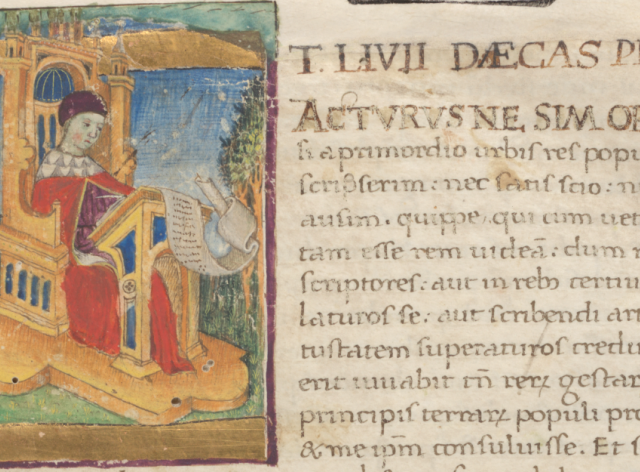 T. LIVII DÆCAS PR
ACTVRVSNE SIM OP
si a primordio urbis res popu
scripserim: nec satis scio: n
ausim. quippe qui cum uet
tam esse rem uideā: dum
scriptores: aut in reb⁹ certiu
laturos se: aut scribendi art
tustatem superaturos credu
erit iuuabit tn̄ rerꝝ gestar
principis terrarꝝ populi pro
& me ip̄m consuluisse. Et s